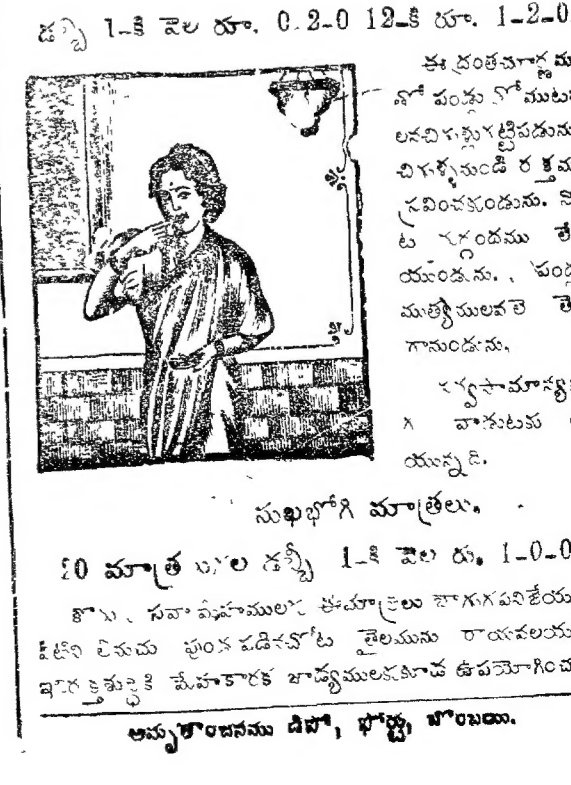 డబ్బీ 1-కి వెల రూ. 0-2-0 12-కి రూ. 1-2-0
ఈ దంతచూర్ణమ
తో పండ్లు తోముట
లనచిగుళ్లుగట్టిపడును
చిగుళ్ళనుండి రక్తమ
స్రవించకుండును. నో
ట దుర్గంధము లే
యుండును. పండ్ల
ముత్యములవలె తె
గానుండును.
సర్వసామాన్య
గ వాడుటకు
యున్నది.
సుఖభోగి మాత్రలు.
20 మాత్ర డబ్బీ 1-కి వెల రు. 1-0-0
ఈమాత్రలు బాగుగపనిజేయు
తైలమును రాయవలయు
మేహకారక జాడ్యములకుకూడ ఉపయోగించ
అమృతాంజనము డిపో, ఫోర్టు, బొంబయి.